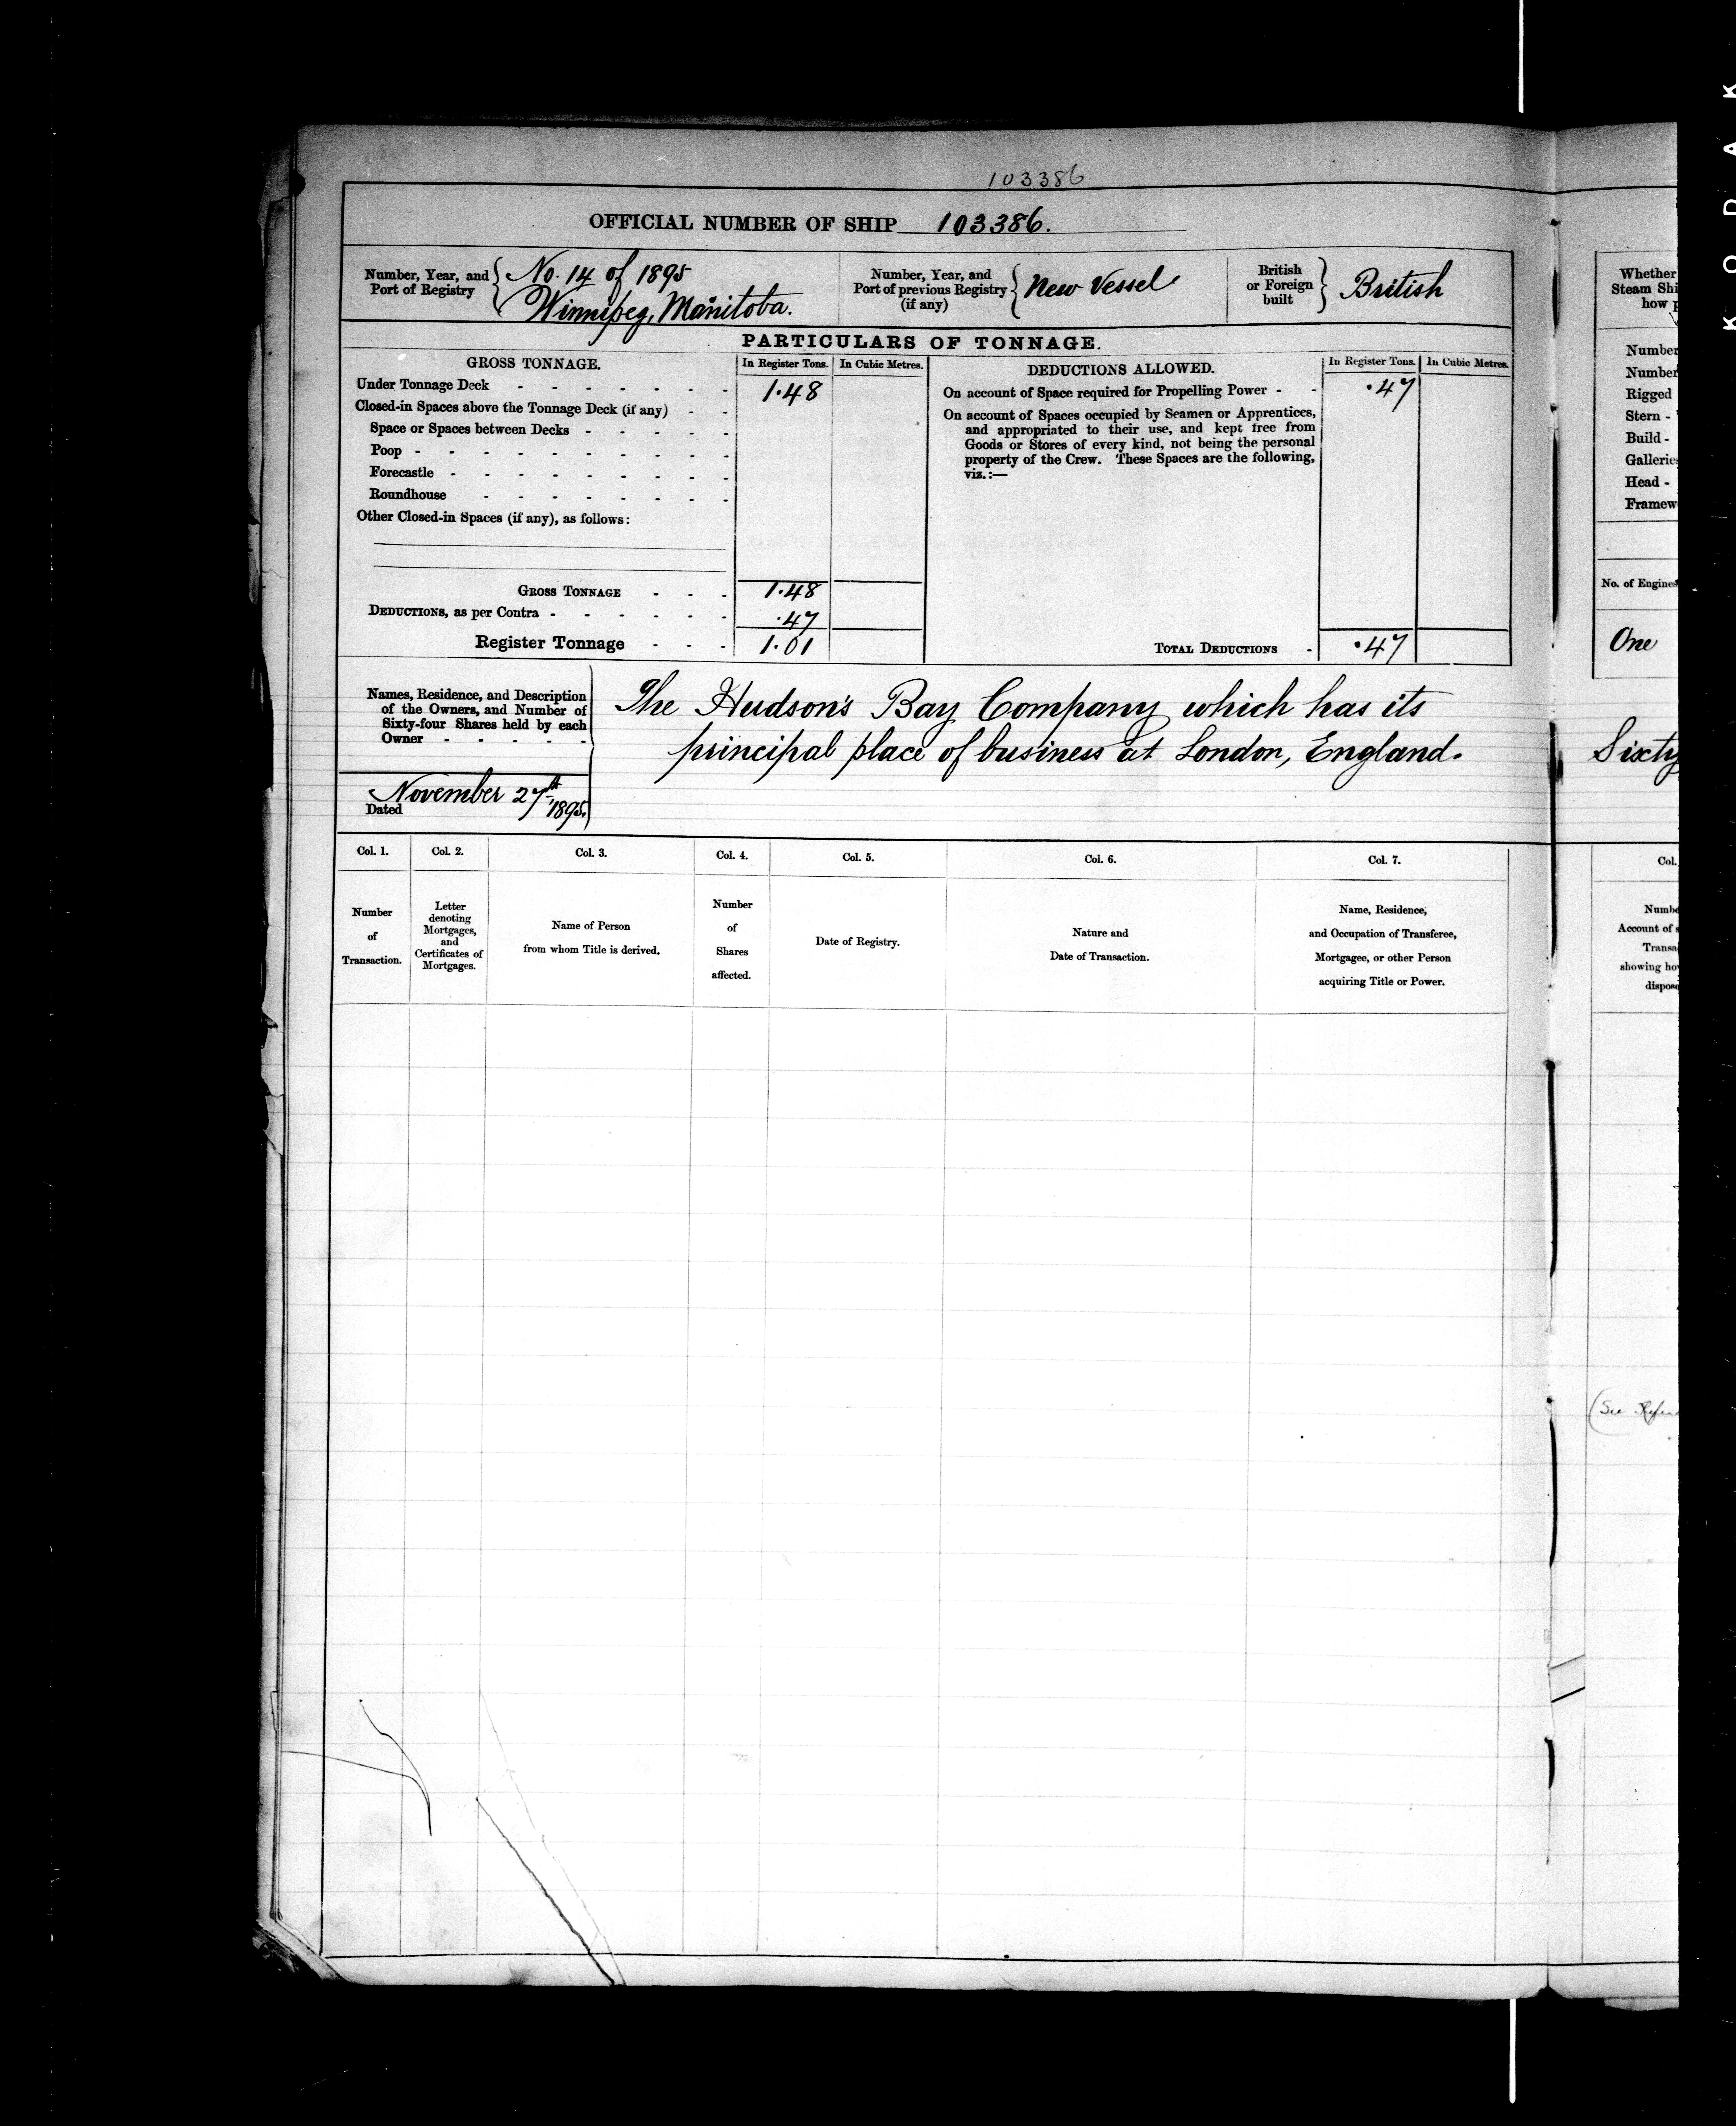 103386
OFFICIAL NUMBER OF SHIP 103386.
Number, Year, and Port of Registry { No. 14 of 1895
Winnipeg, Manitoba.
Number, Year, and
Port of previous Registry { New Vessel
(if any)
British
or Foreign } British
built
PARTICULARS OF TONNAGE.
GROSS TONNAGE. In Register Tons. In Cubic Metres.
Under Tonnage Deck - - - - - - - 1.48
Closed-in Spaces above the Tonnage Deck (if any) - -
Space or Spaces between Decks - - - - -
Poop - - - - - - - - - -
Forecastle - - - - - - - - -
Roundhouse - - - - - - - -
Other Closed-in Spaces (if any), as follows:
GROSS TONNAGE - - - 1.48
DEDUCTIONS, as per Contra - - - - - - .47
Register Tonnage - - - 1.01
DEDUCTIONS ALLOWED. In Register Tons. In Cubic Metres.
On account of Space required for Propelling Power - - .47
On account of Spaces occupied by Seamen or Apprentices,
and appropriated to their use, and kept free from
Goods or Stores of every kind, not being the personal
property of the Crew. These Spaces are the following,
viz.:—
TOTAL DEDUCTIONS - .47
Names, Residence, and Description
of the Owners, and Number of
Sixty-four Shares held by each
Owner - - - - -
The Hudson's Bay Company which has its
principal place of business at London, England.
Dated November 27th 1895.
Col. 1. Col. 2. Col. 3. Col. 4. Col. 5. Col. 6. Col. 7.
Number
of
Transaction.
Letter
denoting
Mortgages,
and
Certificates of
Mortgages.
Name of Person
from whom Title is derived.
Number
of
Shares
affected.
Date of Registry.
Nature and
Date of Transaction.
Name, Residence,
and Occupation of Transferee,
Mortgagee, or other Person
acquiring Title or Power.
Whether
Steam Shi
how
Number
Number
Rigged
Stern -
Build -
Gallerie
Head -
Framew
No. of Engines
One
Sixty
Col.
Numbe
Account of
Transa
showing ho
dispose
(See
K O D A K